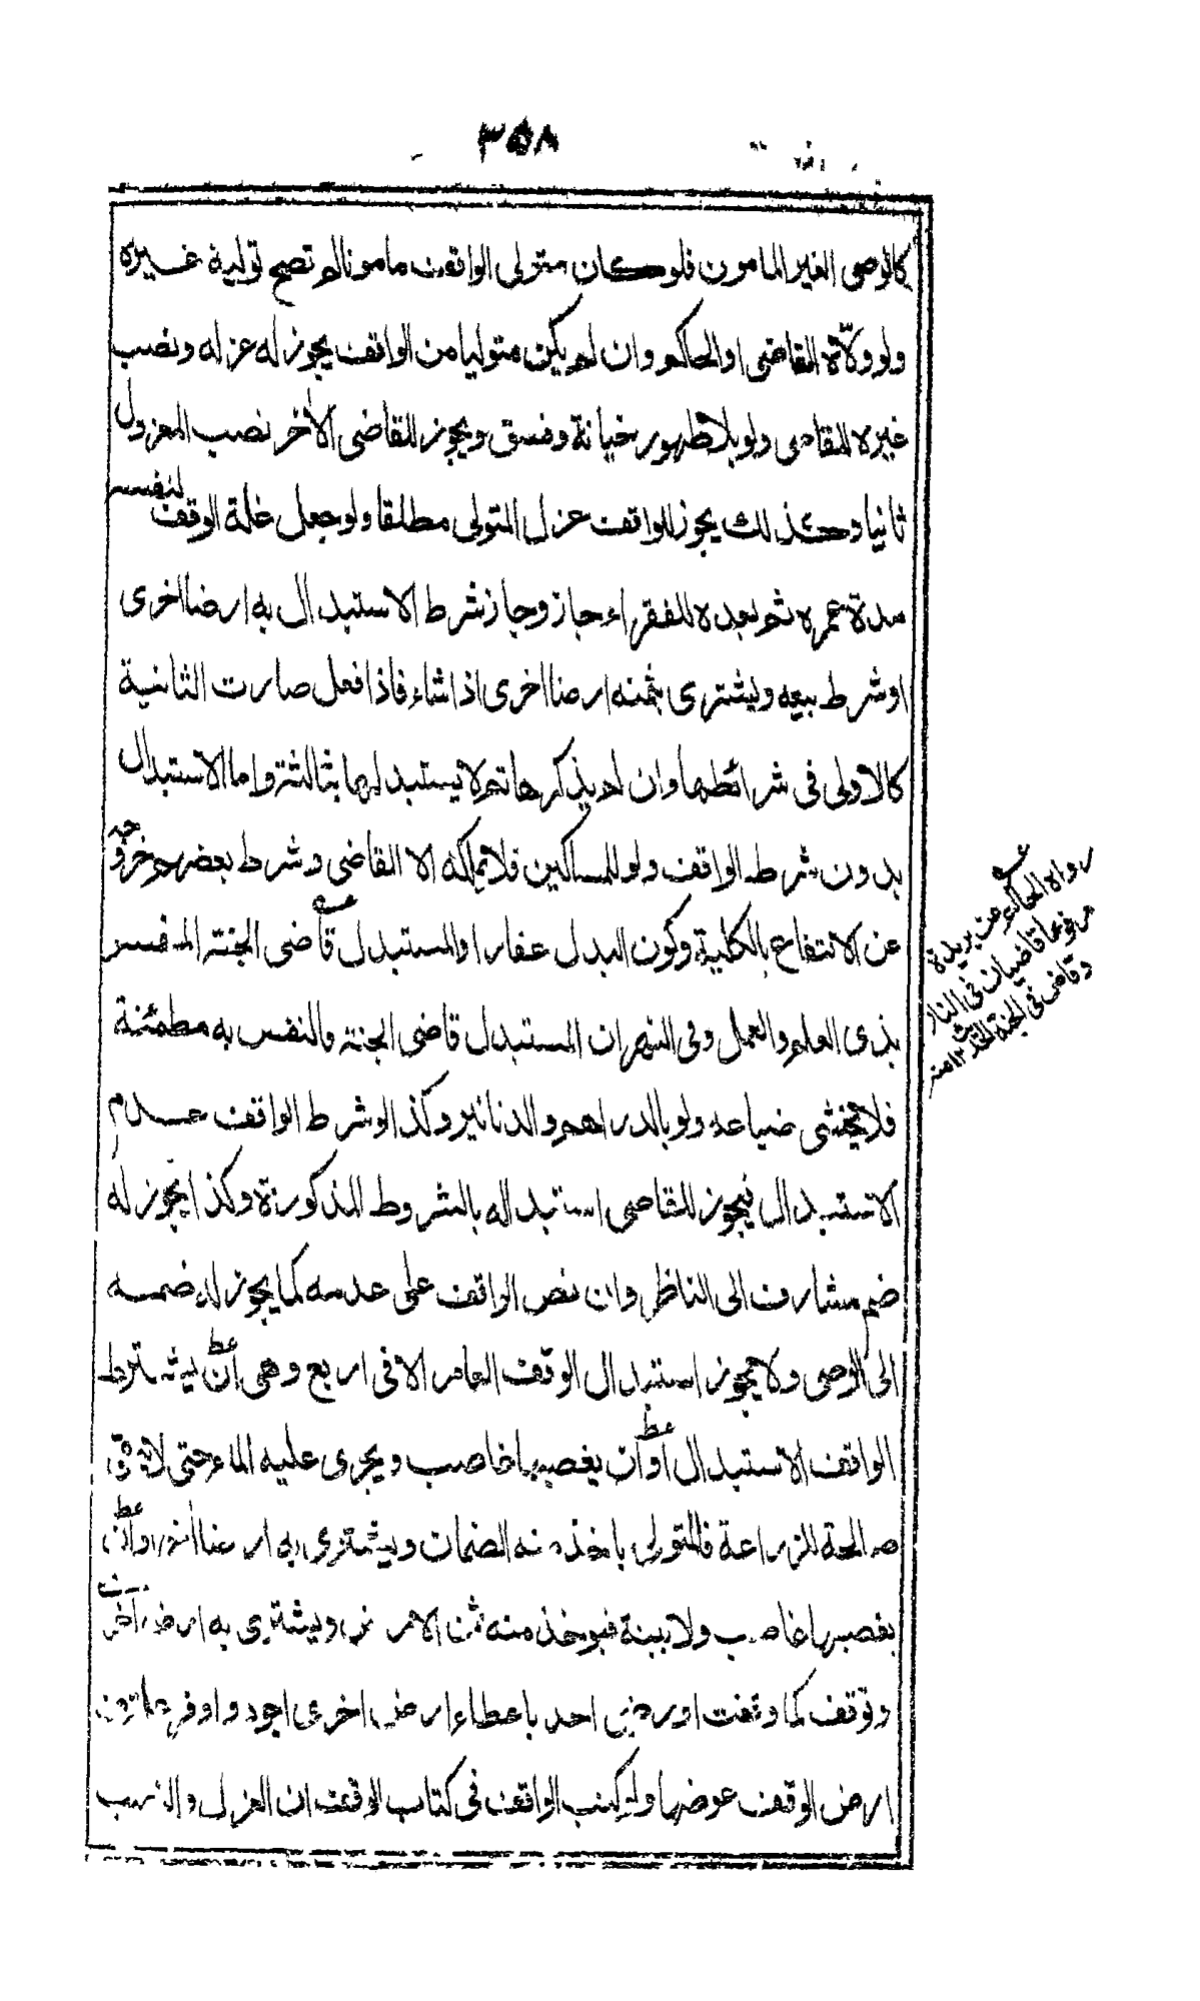 ٣٥٨
كالوصى الغير المامون فلو كان متولى الواقف مامونا لم تصح تولية غيره
ولو ولّاه القاضى او الحاكم وان لم يكن متوليا من الواقف يجوز له عزله ونصب
غيره للقاضى ولو بلا ظهور خيانة وفسق ويجوز للقاضى الأخر نصب المعزول
ثانيا وكذلك يجوز للواقف عزل المتولى مطلقا ولو جعل غلة الوقف لنفسه
مدة عمره ثم بعده للفقراء جاز وجاز شرط الاستبدال به ارضا اخرى
او شرط بيعه ويشترى بثمنه ارضا اخرى اذا شاء فاذا فعل صارت الثانية
كالاولى فى شرائطها وان لم يذكرها ثم لا يستبدلها بثالثة واما الاستبدال
بدون شرط الواقف ولو للمساكين فلا يملكه الا القاضى وشرط بعضهم خروجه
عن الانتفاع بالكلية وكون البدل عقارا والمستبدل قاضى الجنة المفسر
بذى العلم والعمل وفى النهر ان المستبدل قاضى الجنة فالنفس به مطمئنة
فلا يخشى ضياعه ولو بالدراهم والدنانير وكذا لو شرط الواقف عدم
الاستبدال فيجوز للقاضى استبداله بالشروط المذكورة وكذا يجوز له
ضم مشارف الى الناظر وان نص الواقف على عدمه كما يجوز له ضمه
الى الوصى ولا يجوز استبدال الوقف العامر الا فى اربع وهى ان يشترط
الواقف الاستبدال او ان يغصبها غاصب ويجرى عليه الماء حتى لا تبقى
صالحة للزراعة فالمتولى ياخذ منه الضمان ويشترى به ارضا اخرى او ان
يغصبها غاصب ولا بينة فيوخذ منه ثمن الارض ويشترى به ارض اخرى
وتوقف كما وقفت او رضى احد باعطاء ارض اخرى اجود واوفر
ارض الوقف عوضها ولو كتب الواقف فى كتاب الوقف ان العزل والنصب
رواه الحاكم عن بريدة
مرفوعا قاضيان فى النار
وقاض فى الجنة الحديث ١٢ منه